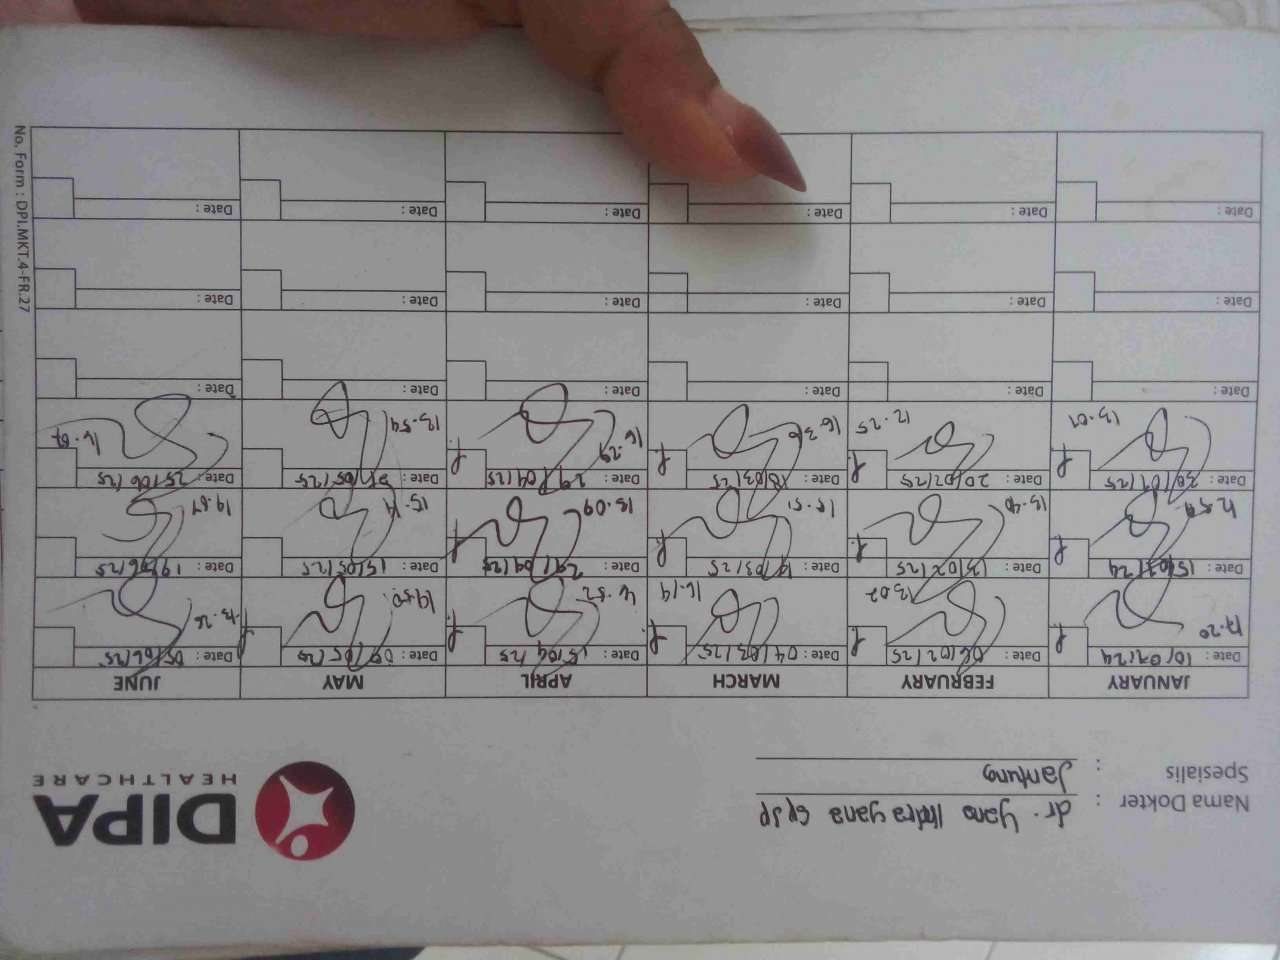 DIPA
HEALTHCARE
Nama Dokter : dr. Yano Indrayana SpJP
Spesialis : Jantung
JANUARY FEBRUARY MARCH APRIL MAY JUNE
Date : 10/01/24 Date : 06/02/25 Date : 04/03/25 Date : 15/04/25 Date : 09/05/25 Date : 05/06/25
17.20 13.02 16.19 14.50 13.26
Date : 15/01/24 Date : 13/02/25 Date : 14/03/25 Date : 21/04/25 Date : 15/05/25 Date : 19/06/25
13.40 15.51 13.09 15.14 19.57
Date : 30/01/25 Date : 20/02/25 Date : 18/03/25 Date : 29/04/25 Date : 21/05/25 Date : 25/06/25
13.01 12.25 16.36 16.29 13.54 16.07
Date : Date : Date : Date : Date : Date :
Date : Date : Date : Date : Date : Date :
Date : Date : Date : Date : Date : Date :
No. Form : DPI.MKT.4-FR.27